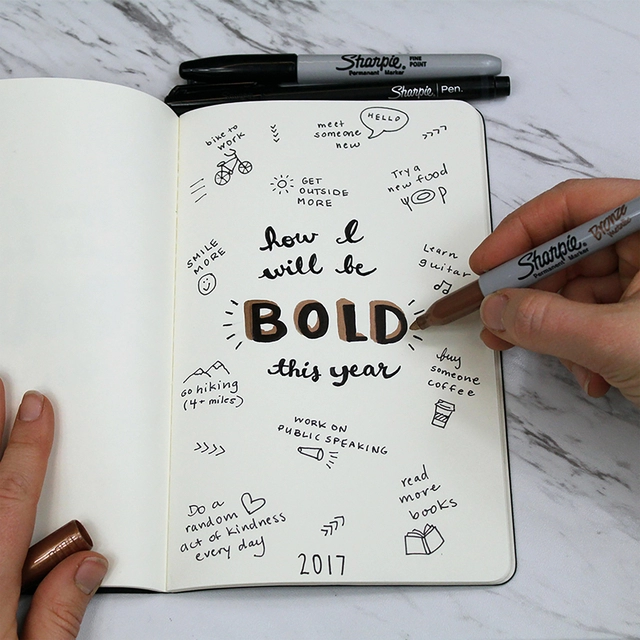 Sharpie. FINE POINT
Permanent Marker
Sharpie | Pen.
bike to
work
meet
someone
new
HELLO
GET
OUTSIDE
MORE
Try a
new food
how I
will be
SMILE
MORE
Learn
guitar
Sharpie.
Permanent Marker
Bronze
BOLD
this year
go hiking
(4+ miles)
buy
someone
coffee
WORK ON
PUBLIC SPEAKING
read
more
books
Do a
random
act of kindness
every day
2017